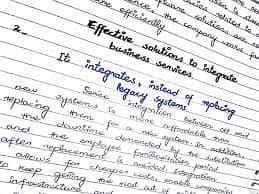 efficiently
2. Effective solutions to integrate
business services
It integrates, instead of replacing
legacy systems
Service integration between old and
new systems is more affordable than
replacing them for a new system. In addition,
the downtime demanded by the substitution
and the employee familiarization period
after replacement is avoided. Integration
allows for cheaper costs, enable companies
to keep getting the most out of
infrastructure and